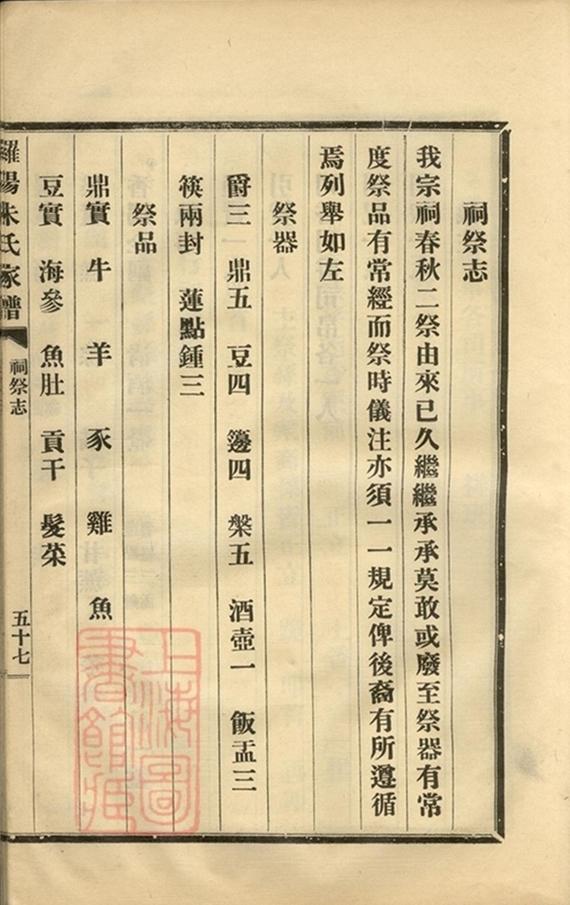 祠祭志
我宗祠春秋二祭由來已久繼繼承承莫敢或廢至祭器有常
度祭品有常經而祭時儀注亦須一一規定俾後裔有所遵循
焉列舉如左
祭器
爵三　鼎五　豆四　籩四　槃五　酒壺一　飯盂三
筷兩封　蓮點鍾三
祭品
鼎實　牛　羊　豕　雞　魚
豆實　海參　魚肚　貢干　髮菜
羅陽朱氏家譜　祠祭志　五十七
上海圖書館藏